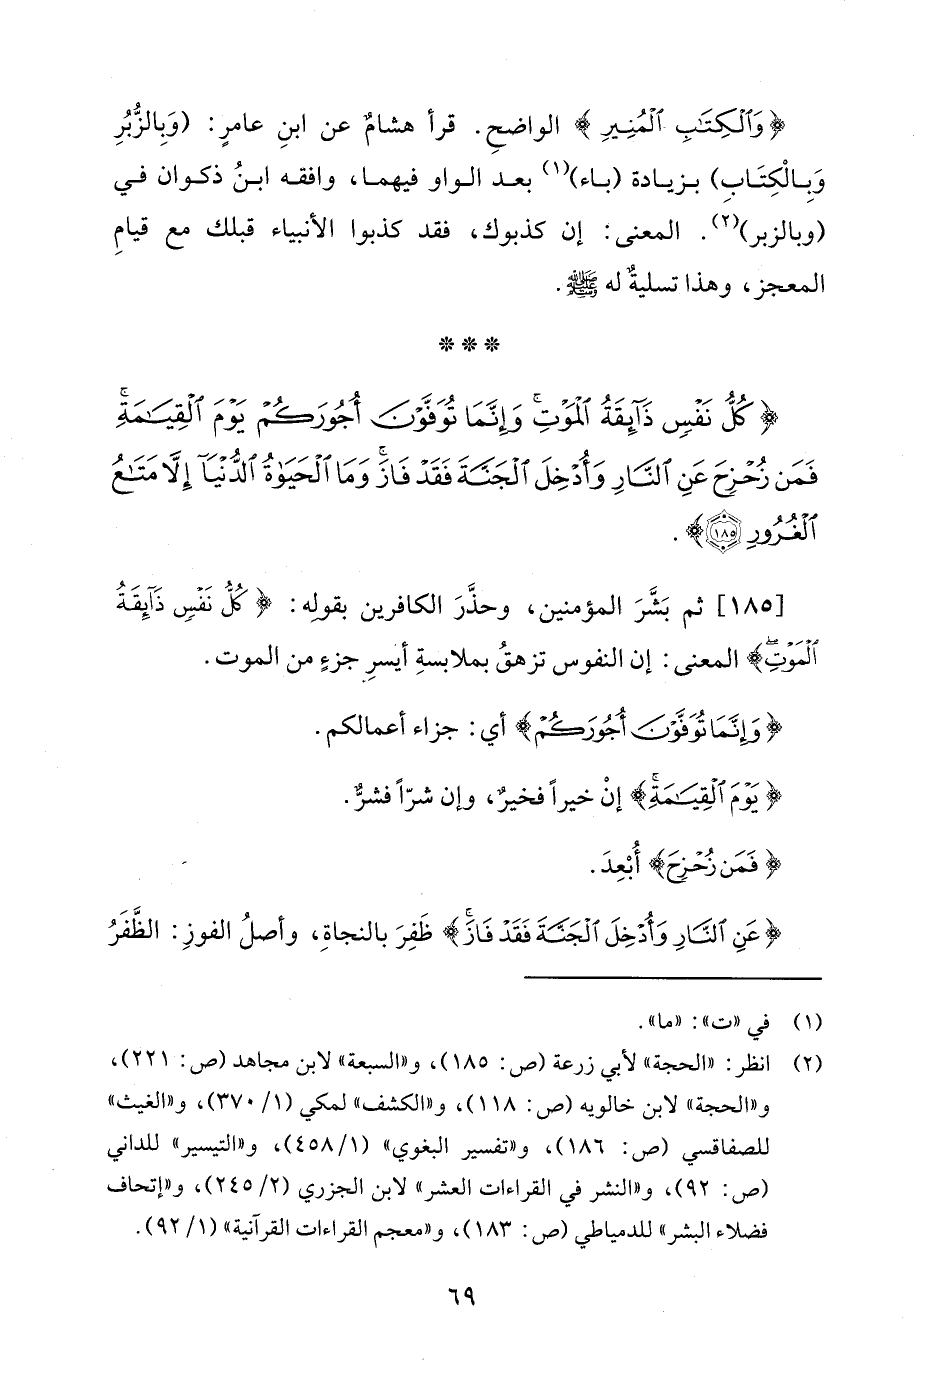 ﴿ وَٱلْكِتَٰبِ ٱلْمُنِيرِ ﴾ الواضحِ. قرأ هشامٌ عن ابنِ عامرٍ: (وَبِالزُّبُرِ
وَبِالْكِتَابِ) بزيادة (باء)(١) بعد الواو فيهما، وافقه ابنُ ذكوان في
(وبالزبر)(٢). المعنى: إن كذبوك، فقد كذبوا الأنبياء قبلك مع قيامِ
المعجز، وهذا تسليةٌ له ﷺ.
* * *
﴿ كُلُّ نَفْسٍ ذَآئِقَةُ ٱلْمَوْتِۗ وَإِنَّمَا تُوَفَّوْنَ أُجُورَكُمْ يَوْمَ ٱلْقِيَٰمَةِۖ
فَمَن زُحْزِحَ عَنِ ٱلنَّارِ وَأُدْخِلَ ٱلْجَنَّةَ فَقَدْ فَازَۗ وَمَا ٱلْحَيَوٰةُ ٱلدُّنْيَآ إِلَّا مَتَٰعُ
ٱلْغُرُورِ ١٨٥﴾.
[١٨٥] ثم بَشَّرَ المؤمنين، وحذَّرَ الكافرين بقولِه: ﴿ كُلُّ نَفْسٍ ذَآئِقَةُ
ٱلْمَوْتِۗ﴾ المعنى: إن النفوس تزهقُ بملابسةِ أيسرِ جزءٍ من الموت.
﴿ وَإِنَّمَا تُوَفَّوْنَ أُجُورَكُمْ﴾ أي: جزاء أعمالكم.
﴿ يَوْمَ ٱلْقِيَٰمَةِۖ﴾ إنْ خيراً فخيرٌ، وإن شرّاً فشرٌّ.
﴿ فَمَن زُحْزِحَ﴾ أُبْعِدَ.
﴿ عَنِ ٱلنَّارِ وَأُدْخِلَ ٱلْجَنَّةَ فَقَدْ فَازَۗ﴾ ظَفِرَ بالنجاةِ، وأصلُ الفوزِ: الظَّفَرُ
(١) في «ت»: «ما».
(٢) انظر: «الحجة» لأبي زرعة (ص: ١٨٥)، و«السبعة» لابن مجاهد (ص: ٢٢١)،
و«الحجة» لابن خالويه (ص: ١١٨)، و«الكشف» لمكي (١/ ٣٧٠)، و«الغيث»
للصفاقسي (ص: ١٨٦)، و«تفسير البغوي» (١/ ٤٥٨)، و«التيسير» للداني
(ص: ٩٢)، و«النشر في القراءات العشر» لابن الجزري (٢/ ٢٤٥)، و«إتحاف
فضلاء البشر» للدمياطي (ص: ١٨٣)، و«معجم القراءات القرآنية» (١/ ٩٢).
٦٩